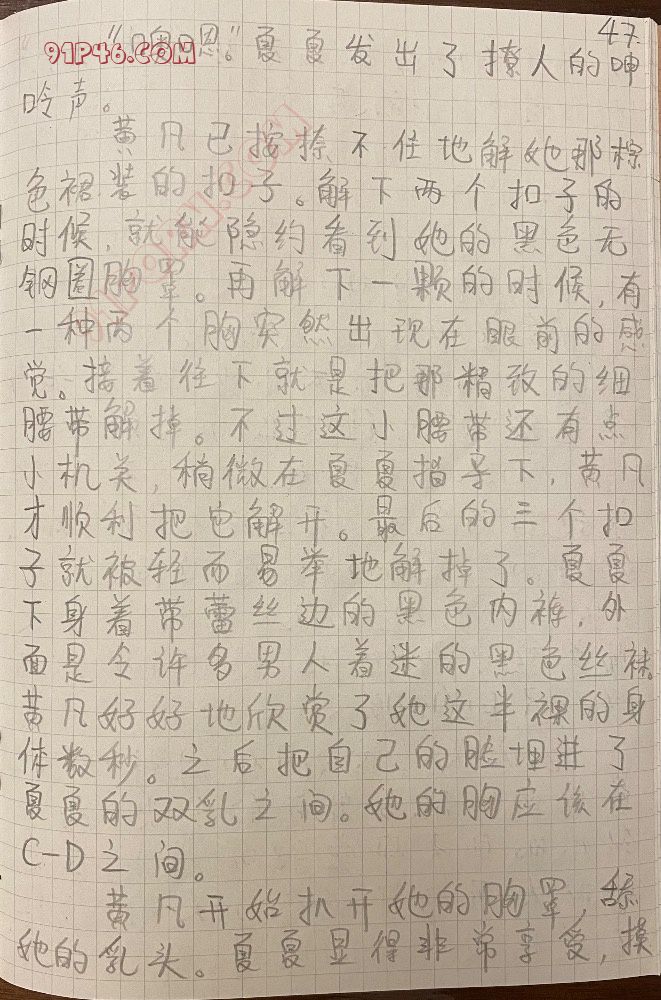 47.
91P46.COM
"嗯恩。"夏夏发出了撩人的呻
吟声。
黄凡已按捺不住地解她那棕
色裙装的扣子。解下两个扣子的
时候，就能隐约看到她的黑色无
钢圈胸罩。再解下一颗的时候，有
一种两个胸突然出现在眼前的感
觉。接着往下就是把那精致的细
腰带解掉。不过这小腰带还有点
小机关，稍微在夏夏指导下，黄凡
才顺利把它解开。最后的三个扣
子就被轻而易举地解掉了。夏夏
下身着带蕾丝边的黑色内裤，外
面是令许多男人着迷的黑色丝袜。
黄凡好好地欣赏了她这半裸的身
体数秒。之后把自己的脸埋进了
夏夏的双乳之间。她的胸应该在
C-D之间。
黄凡开始扒开她的胸罩，舔
她的乳头。夏夏显得非常享受，摸